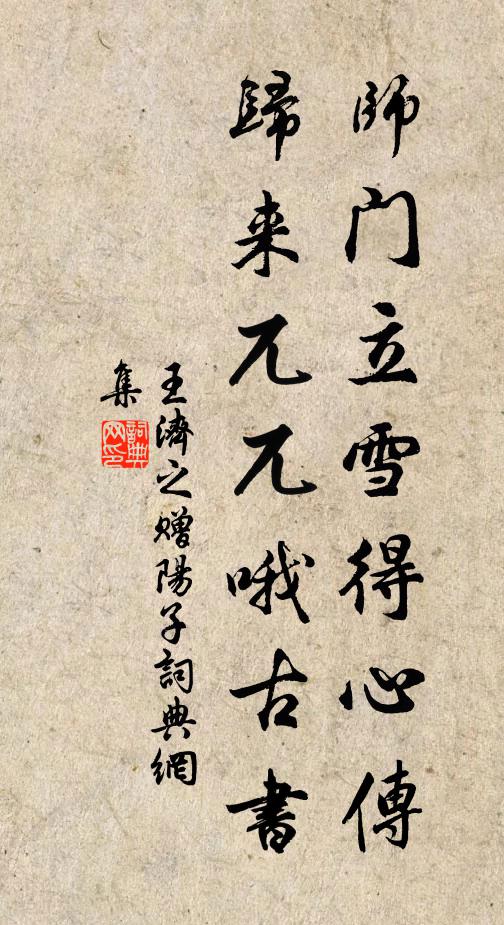 師門立雪得心傳
歸来兀兀哦古書
王濟之赠陽子詞典網
集
詞典
网印